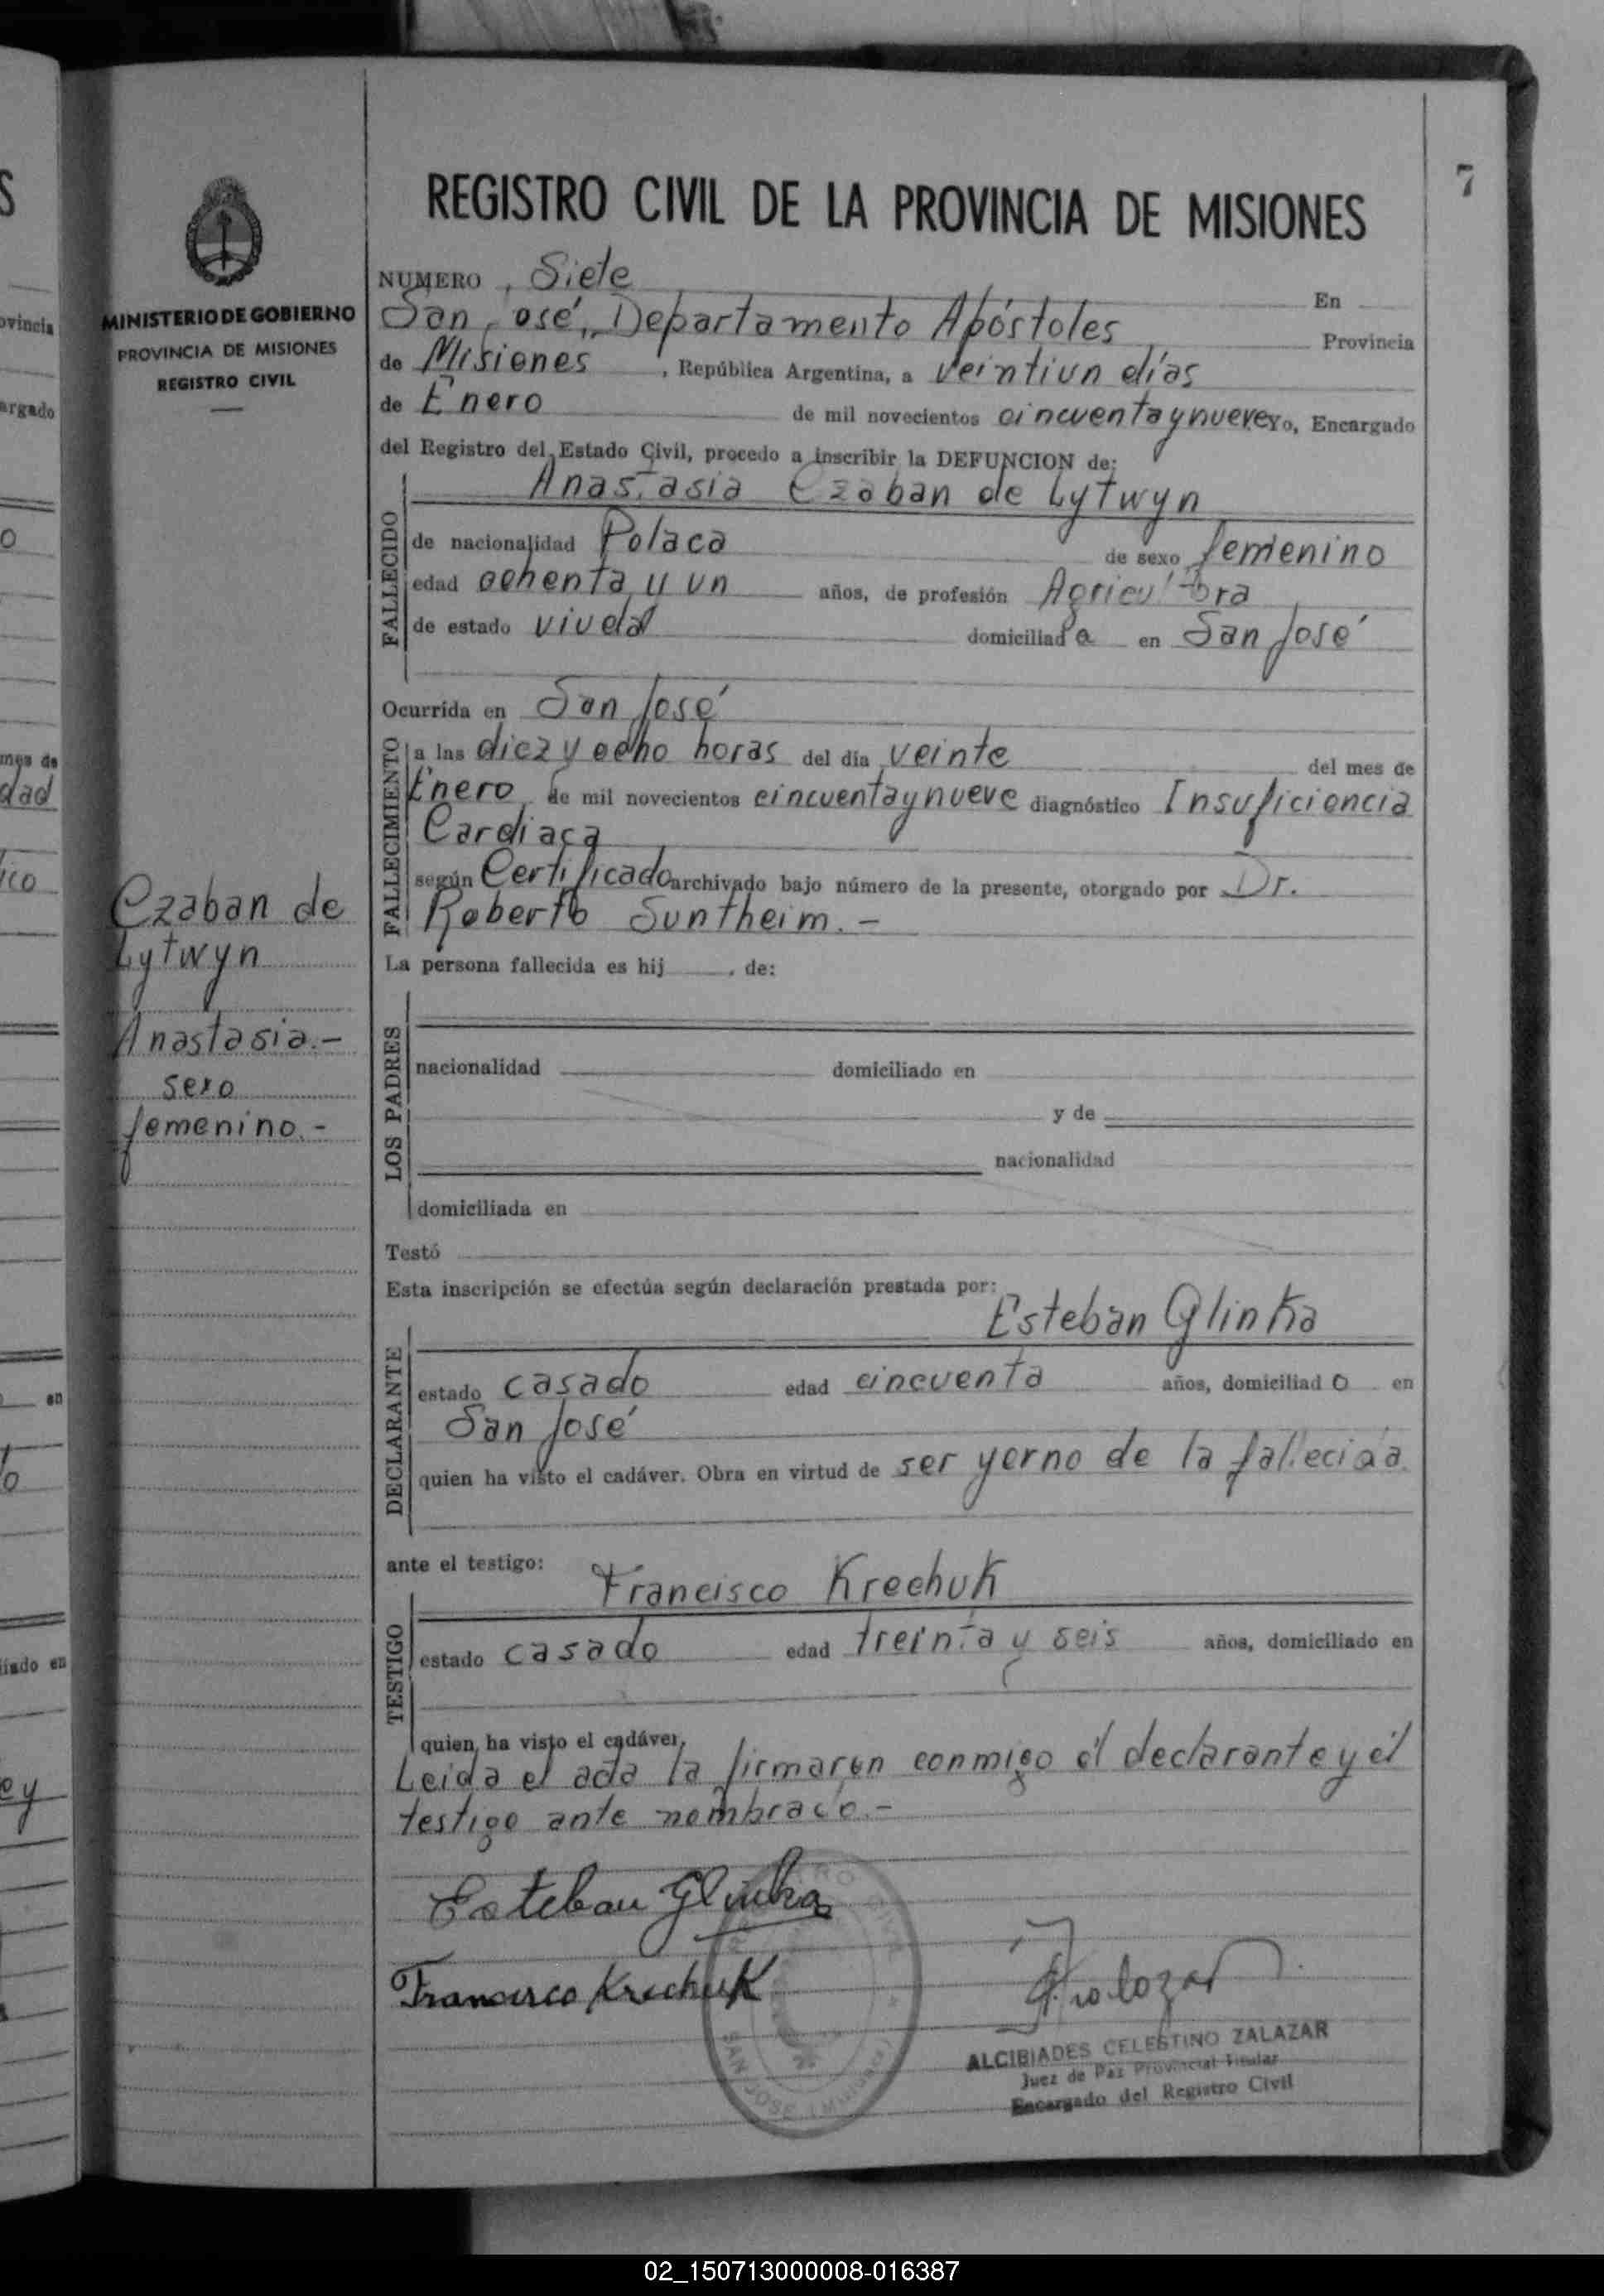 7
REGISTRO CIVIL DE LA PROVINCIA DE MISIONES
MINISTERIO DE GOBIERNO
PROVINCIA DE MISIONES
REGISTRO CIVIL
NUMERO Siete En
San José, Departamento Apóstoles Provincia
de Misiones, República Argentina, a veintiun días
de Enero de mil novecientos cincuentaynueve Yo, Encargado
del Registro del Estado Civil, procedo a inscribir la DEFUNCION de:
Anastasia Czaban de Lytwyn
FALLECIDO
de nacionalidad Polaca de sexo femenino
edad ochenta y un años, de profesión Agricultora
de estado viuda domiciliada en San José
Ocurrida en San José
FALLECIMIENTO
a las diez y ocho horas del día veinte del mes de
Enero de mil novecientos cincuentaynueve diagnóstico Insuficiencia
Cardiaca
según Certificado archivado bajo número de la presente, otorgado por Dr.
Roberto Suntheim.-
Czaban de
Lytwyn
Anastasia.-
sexo
femenino.-
La persona fallecida es hij , de:
LOS PADRES
nacionalidad domiciliado en
y de
nacionalidad
domiciliada en
Testó
Esta inscripción se efectúa según declaración prestada por:
Esteban Glinka
DECLARANTE
estado casado edad cincuenta años, domiciliado en
San José
quien ha visto el cadáver. Obra en virtud de ser yerno de la fallecida.
ante el testigo:
Francisco Krechuk
TESTIGO
estado casado edad treinta y seis años, domiciliado en
quien ha visto el cadáver.
Leida el acta la firmaron conmigo el declarante y el
testigo ante nombrado.-
Esteban Glinka
Francisco Krechuk
SAN JOSE (Misiones)
ALCIBIADES CELESTINO ZALAZAR
Juez de Paz Provincial Titular
Encargado del Registro Civil
02_150713000008-016387